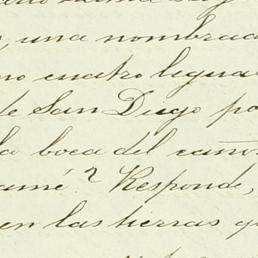 , una nombrada
cuatro leguas
de San Diego po
la boca del cañon
amé? Responde,
en las tierras q